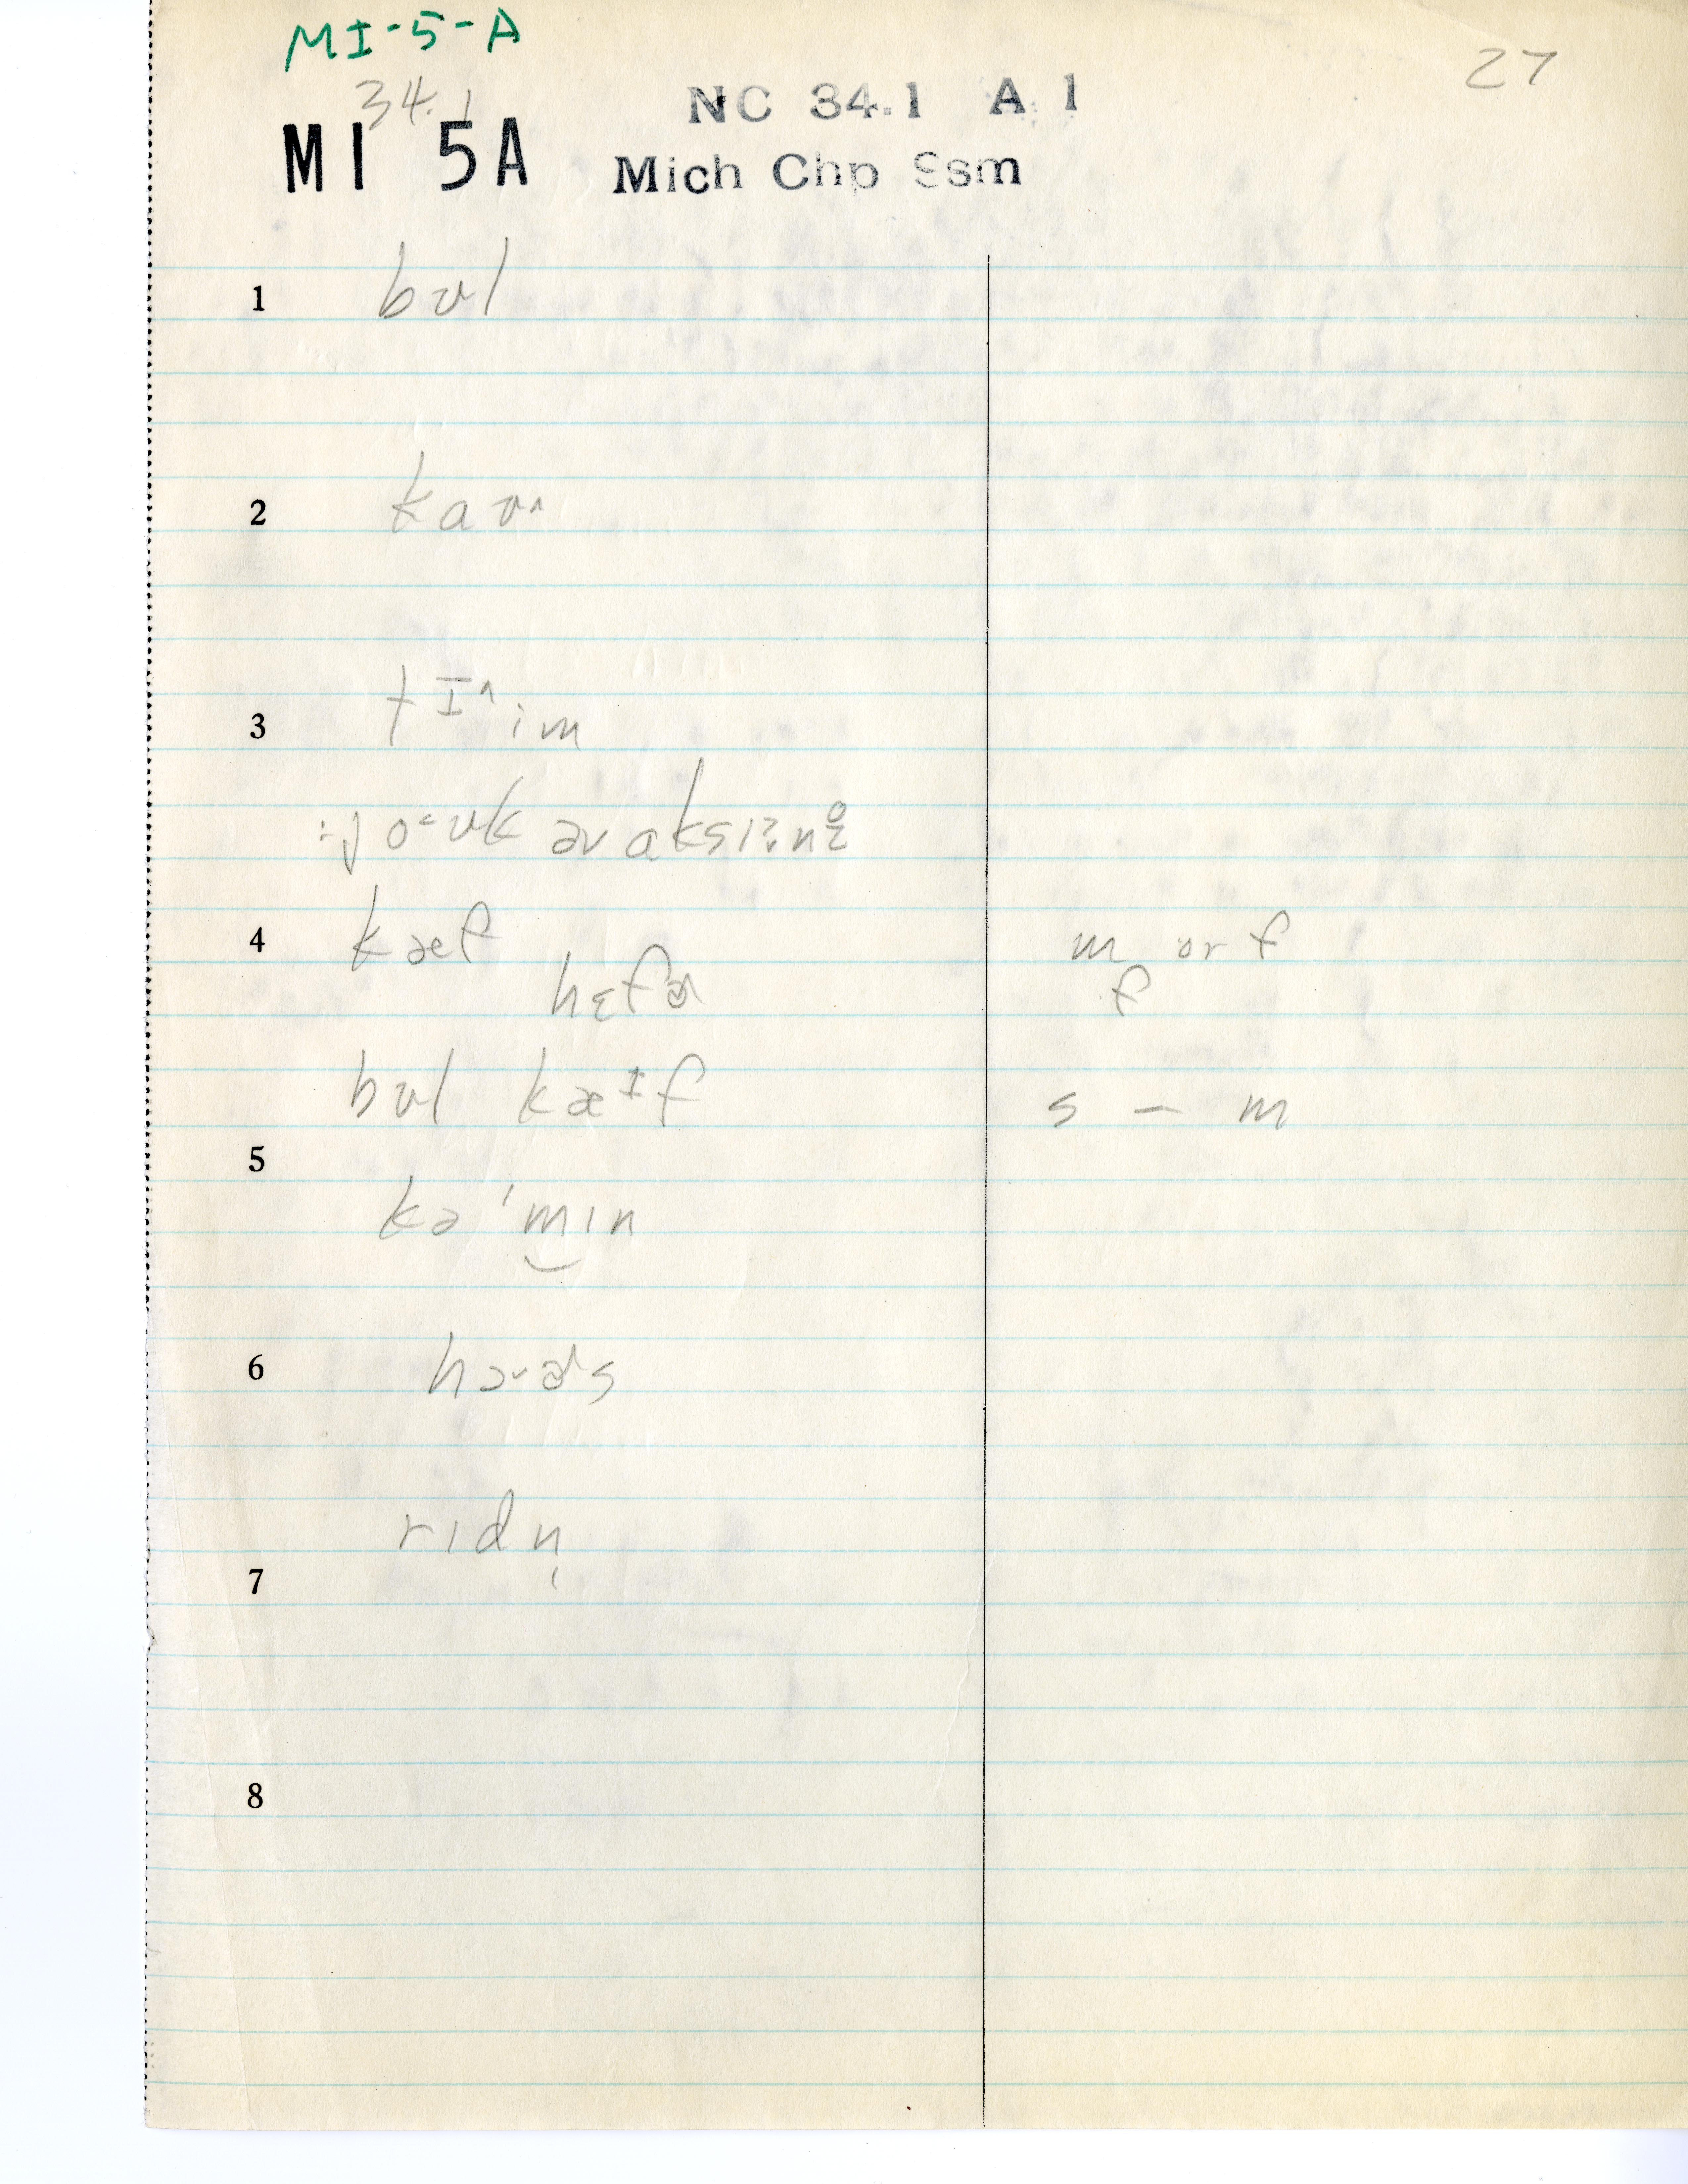 MI-5-A
27
34.1
NC 34.1 A 1
MI 5A
Mich Chp Ssm
1 bʊl
2 kaʊ^
3 tɪ^im
jo<ʊk əv aksɪzn̥z̥
4 kæf m or f
hɛfɚ f
bʊl kæɪf s — m
5 kə'mɪn
6 hɔrəs
7 ridn̩
8